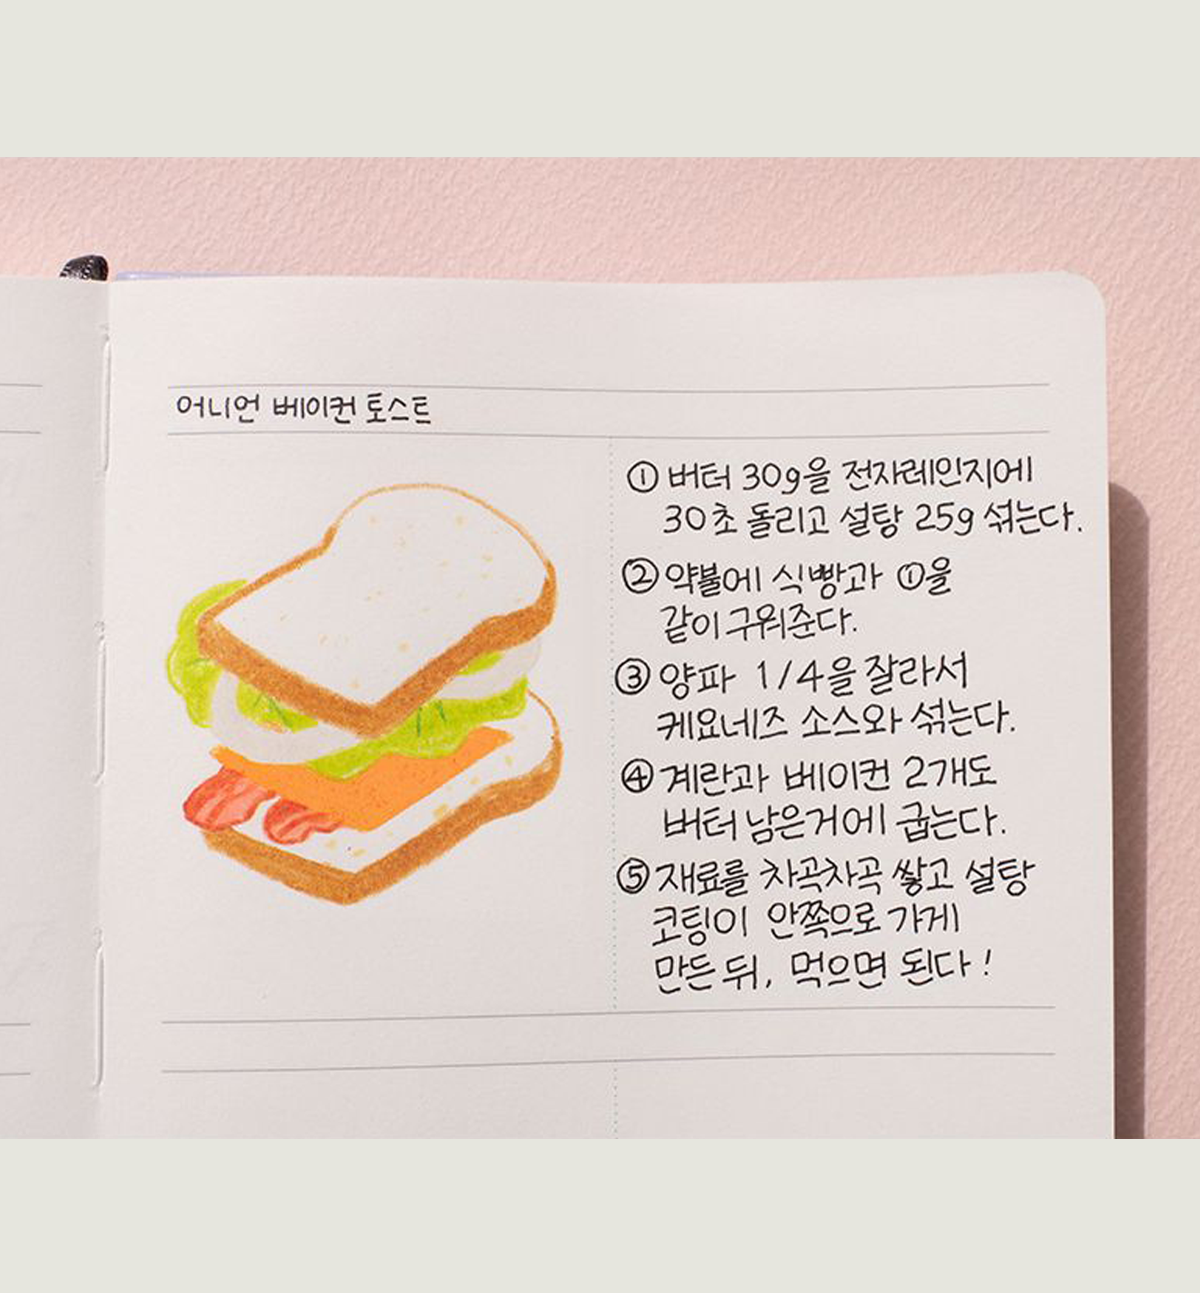 어니언 베이컨 토스트
① 버터 30g을 전자레인지에
30초 돌리고 설탕 25g 섞는다.
② 약불에 식빵과 ①을
같이 구워준다.
③ 양파 1/4을 잘라서
케요네즈 소스와 섞는다.
④ 계란과 베이컨 2개도
버터 남은거에 굽는다.
⑤ 재료를 차곡차곡 쌓고 설탕
코팅이 안쪽으로 가게
만든 뒤, 먹으면 된다!